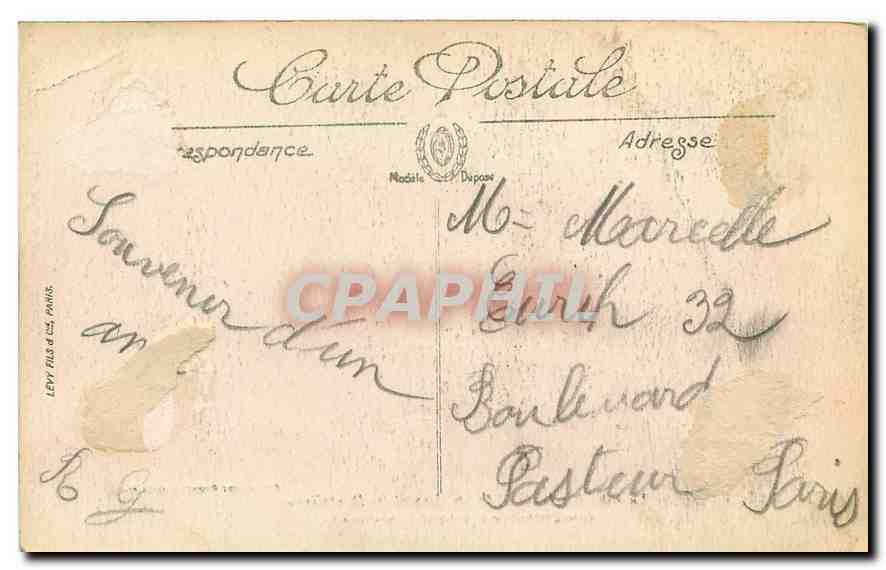 Carte Postale
respondance
Adresse
Modèle Déposé
Souvenir d'un
R G
LEVY FILS & Cie, PARIS.
Me Marcelle
32
Boulevard
Pasteur Paris
CPAPHIL